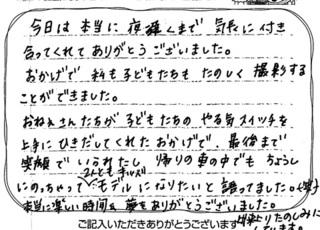 今日は本当に夜遅くまで気長に付き
合ってくれてありがとうございました。
おかげで私も子どもたちもたのしく撮影する
ことができました。
おねえさんたちが子どもたちのやる気スイッチを
上手にひきだしてくれたおかげで、最後まで
笑顔でいられたし、帰りの車の中でもちょうし
にのっちゃって2人ともモデルになりたいと語ってました。
本当に楽しい時間と夢をありがとうございました。
たのしみに
しています。
ご記入いただきありがとうございます